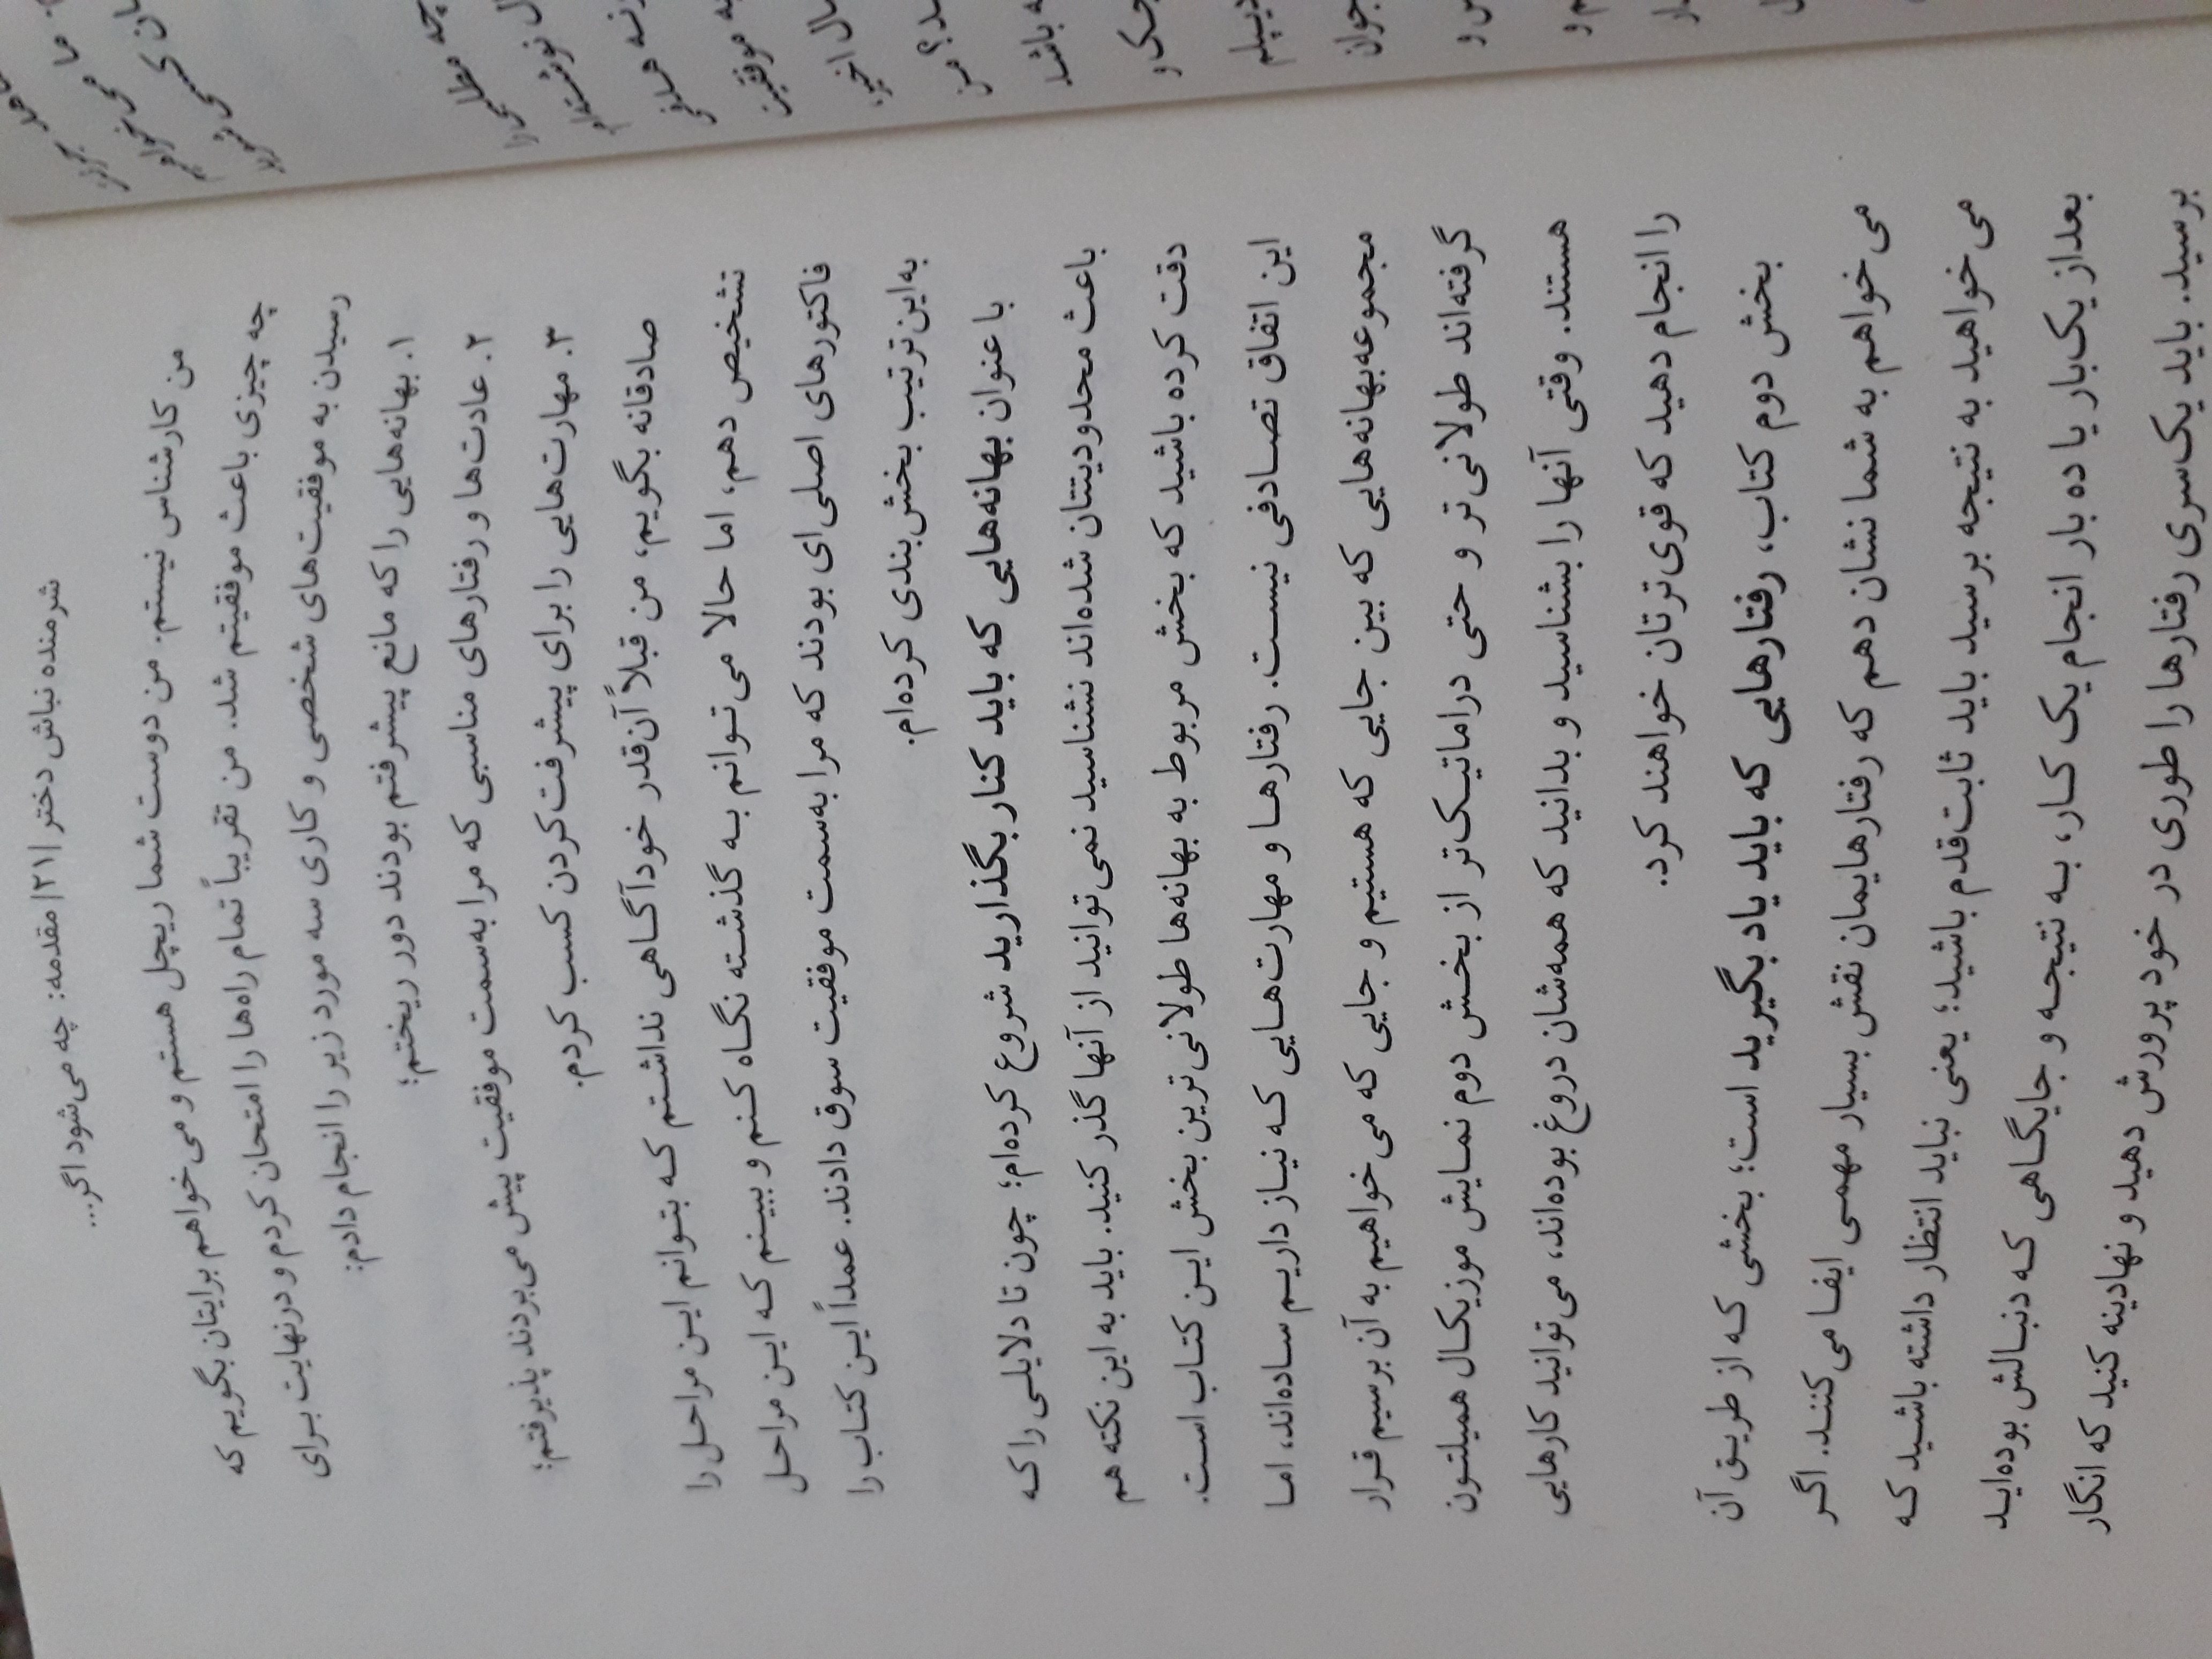 شرمنده نباش دختر |۲۱| مقدمه: چه می‌شود اگر...
من کارشناس نیستم. من دوست شما ریچل هستم و می‌خواهم برایتان بگویم که
چه چیزی باعث موفقیتم شد. من تقریباً تمام راه‌ها را امتحان کردم و درنهایت برای
رسیدن به موفقیت‌های شخصی و کاری سه مورد زیر را انجام دادم:
۱. بهانه‌هایی را که مانع پیشرفتم بودند دور ریختم؛
۲. عادت‌ها و رفتارهای مناسبی که مرا به‌سمت موفقیت پیش می‌بردند پذیرفتم؛
۳. مهارت‌هایی را برای پیشرفت کردن کسب کردم.
صادقانه بگویم، من قبلاً آن‌قدر خودآگاهی نداشتم که بتوانم این مراحل را
تشخیص دهم، اما حالا می‌توانم به گذشته نگاه کنم و ببینم که این مراحل
فاکتورهای اصلی‌ای بودند که مرا به‌سمت موفقیت سوق دادند. عمداً این کتاب را
به‌این‌ترتیب بخش‌بندی کرده‌ام.
با عنوان بهانه‌هایی که باید کنار بگذارید شروع کرده‌ام؛ چون تا دلایلی را که
باعث محدودیتتان شده‌اند نشناسید نمی‌توانید از آنها گذر کنید. باید به این نکته هم
دقت کرده باشید که بخش مربوط به بهانه‌ها طولانی‌ترین بخش این کتاب است.
این اتفاق تصادفی نیست. رفتارها و مهارت‌هایی که نیاز داریم ساده‌اند، اما
مجموعه‌بهانه‌هایی که بین جایی که هستیم و جایی که می‌خواهیم به آن برسیم قرار
گرفته‌اند طولانی‌تر و حتی دراماتیک‌تر از بخش دوم نمایش موزیکال همیلتون
هستند. وقتی آنها را بشناسید و بدانید که همه‌شان دروغ بوده‌اند، می‌توانید کارهایی
را انجام دهید که قوی‌ترتان خواهند کرد.
بخش دوم کتاب، رفتارهایی که باید یاد بگیرید است؛ بخشی که از طریق آن
می‌خواهم به شما نشان دهم که رفتارهایمان نقش بسیار مهمی ایفا می‌کنند. اگر
می‌خواهید به نتیجه برسید باید ثابت‌قدم باشید؛ یعنی نباید انتظار داشته باشید که
بعد از یک‌بار یا ده بار انجام یک کار، به نتیجه و جایگاهی که دنبالش بوده‌اید
برسید. باید یک‌سری رفتارها را طوری در خود پرورش دهید و نهادینه کنید که انگار